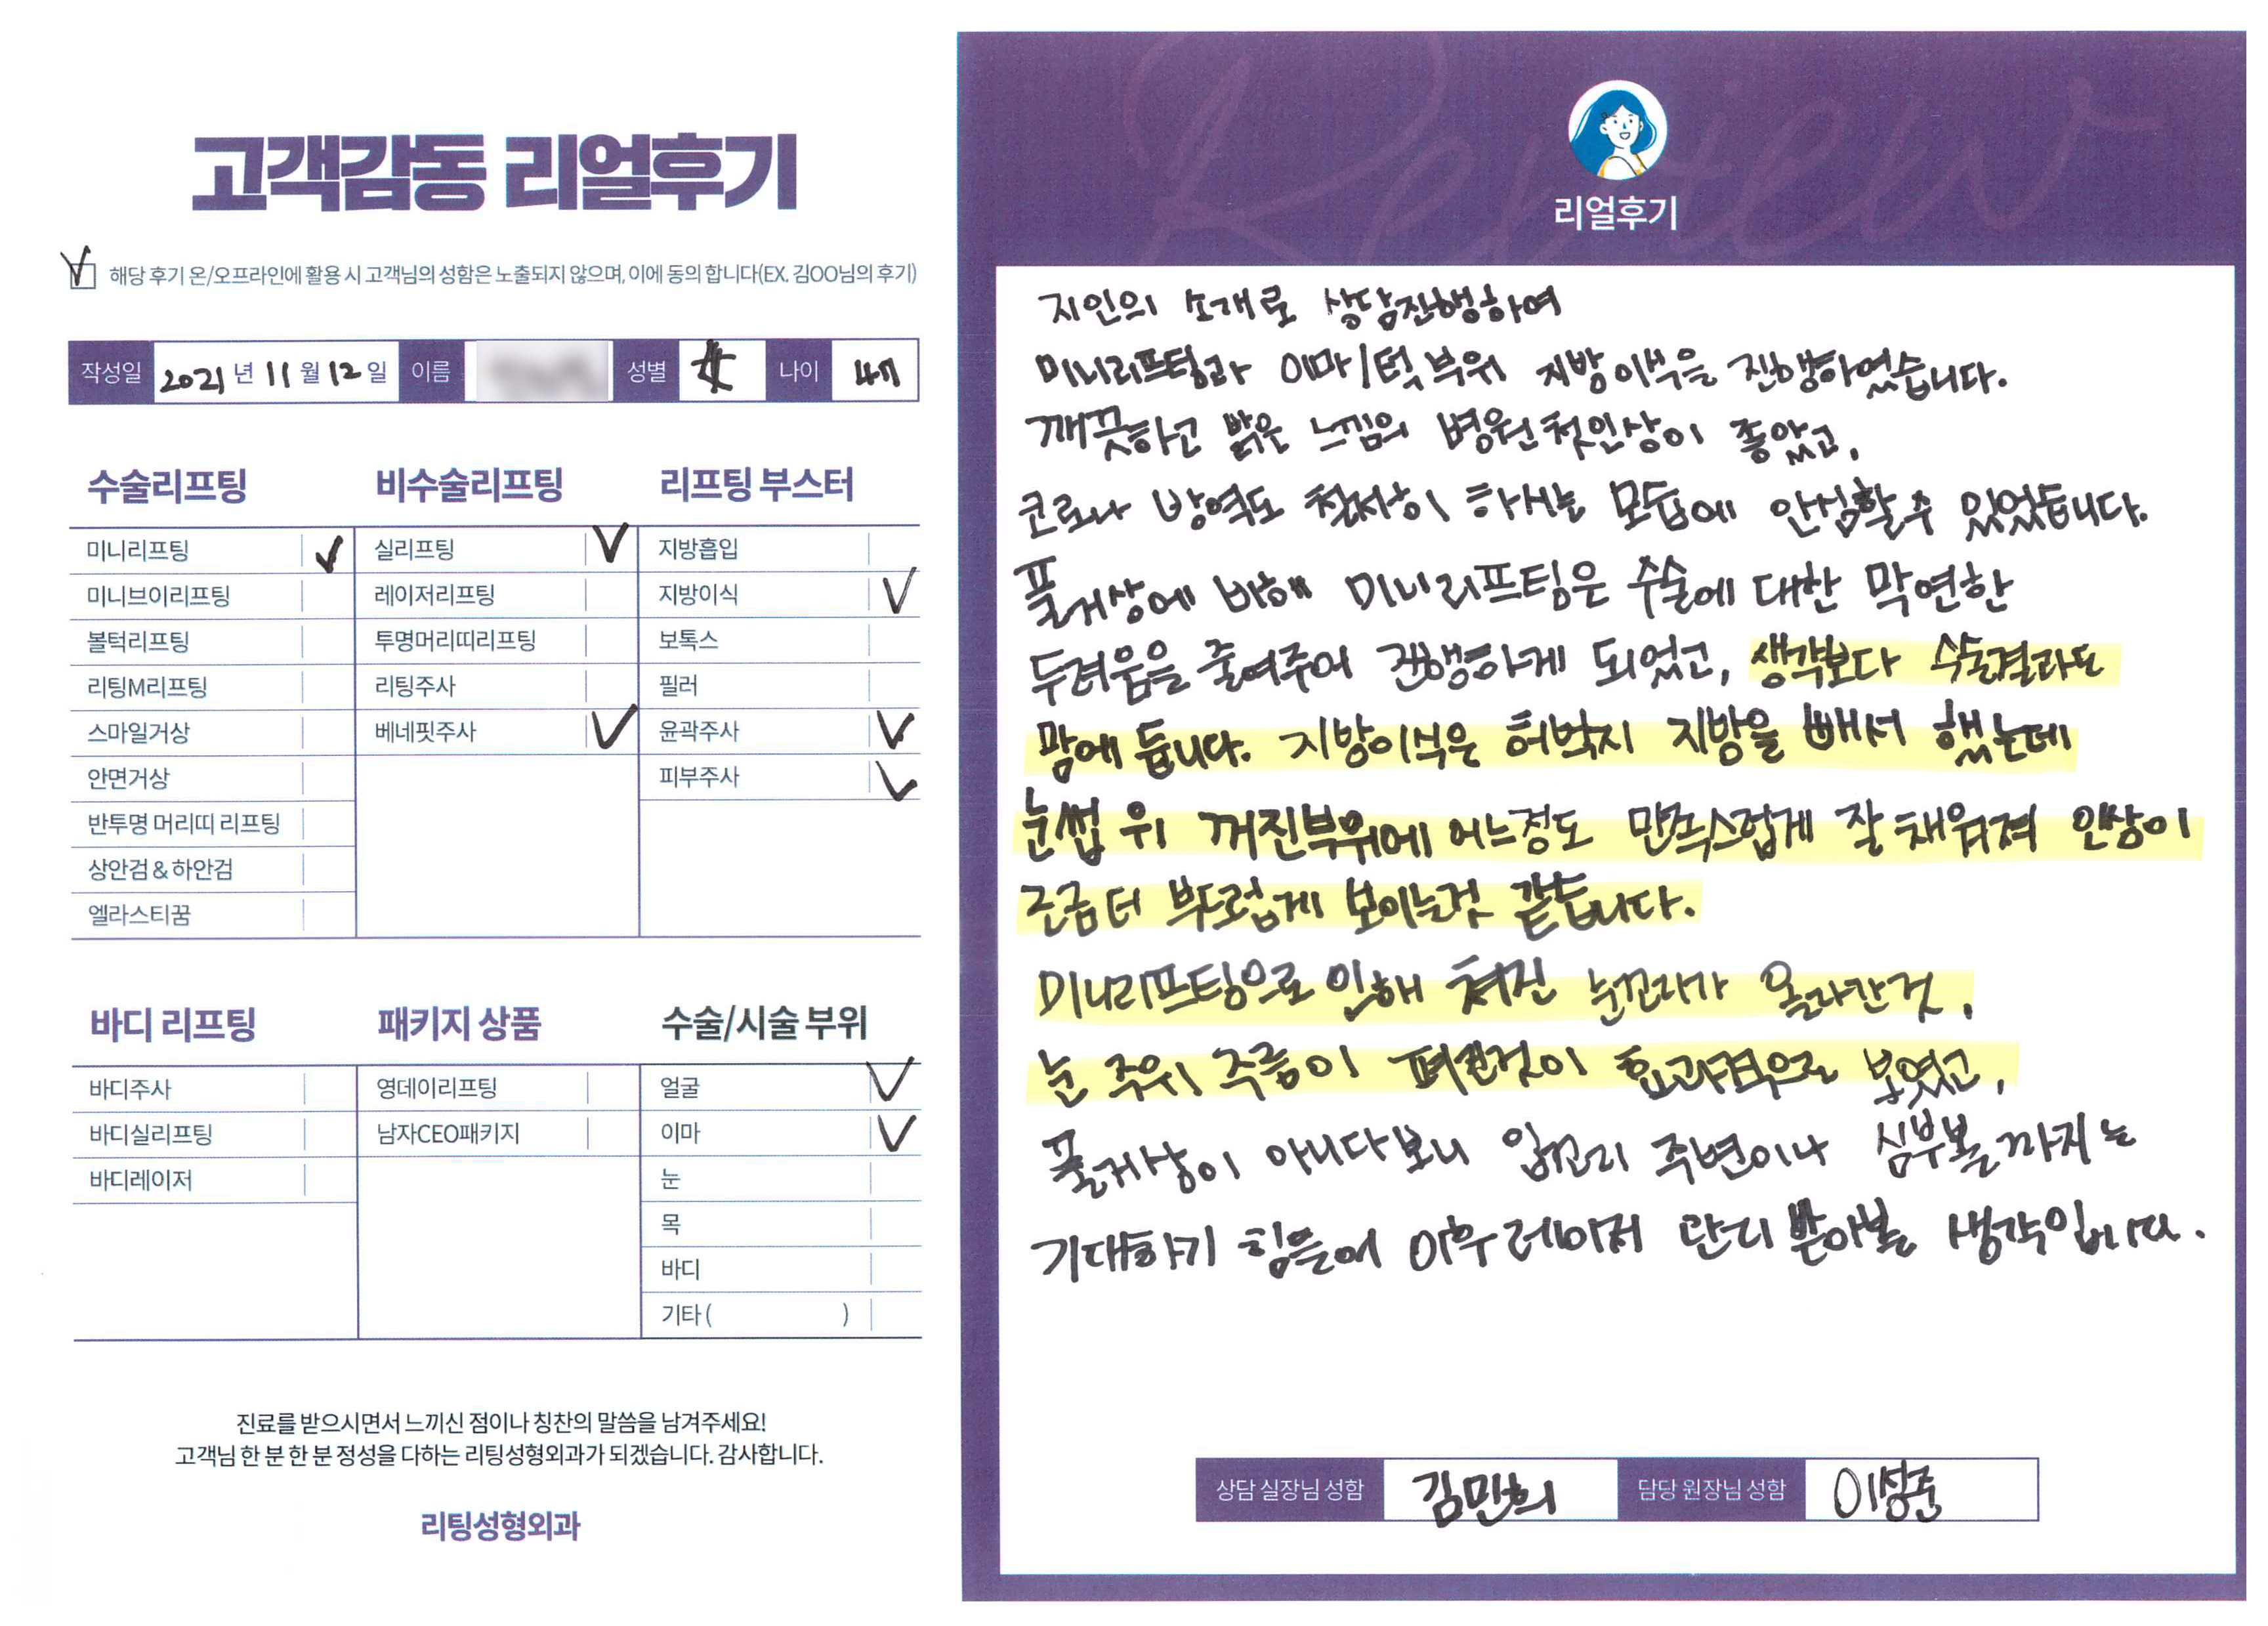 고객감동 리얼후기
해당 후기 온/오프라인에 활용 시 고객님의 성함은 노출되지 않으며, 이에 동의 합니다(EX. 김OO님의 후기)
작성일 2021년 11월 12일 이름 성별 女 나이 47
수술리프팅
미니리프팅
미니브이리프팅
볼턱리프팅
리팅M리프팅
스마일거상
안면거상
반투명 머리띠 리프팅
상안검 & 하안검
엘라스티꿈
비수술리프팅
실리프팅
레이저리프팅
투명머리띠리프팅
리팅주사
베네핏주사
리프팅 부스터
지방흡입
지방이식
보톡스
필러
윤곽주사
피부주사
바디 리프팅
바디주사
바디실리프팅
바디레이저
패키지 상품
영데이리프팅
남자CEO패키지
수술/시술 부위
얼굴
이마
눈
목
바디
기타 ( )
진료를 받으시면서 느끼신 점이나 칭찬의 말씀을 남겨주세요!
고객님 한 분 한 분 정성을 다하는 리팅성형외과가 되겠습니다. 감사합니다.
리팅성형외과
Review
리얼후기
지인의 소개로 상담진행하여
미니리프팅과 이마/턱 부위 지방이식을 진행하였습니다.
깨끗하고 밝은 느낌의 병원 첫인상이 좋았고,
코로나 방역도 철저히 하시는 모습에 안심할 수 있었습니다.
풀거상에 비해 미니리프팅은 수술에 대한 막연한
두려움을 줄여주어 진행하게 되었고, 생각보다 수술결과도
맘에 듭니다. 지방이식은 허벅지 지방을 빼서 했는데
눈썹 위 꺼진부위에 어느정도 만족스럽게 잘 채워져 인상이
조금 더 부드럽게 보이는것 같습니다.
미니리프팅으로 인해 쳐진 눈꼬리가 올라간것,
눈 주위 주름이 펴진것이 효과적으로 보였고,
풀거상이 아니다보니 입꼬리 주변이나 심부볼까지는
기대하기 힘들어 이후 레이저 관리 받아볼 생각입니다.
상담 실장님 성함 김민희 담당 원장님 성함 이성준